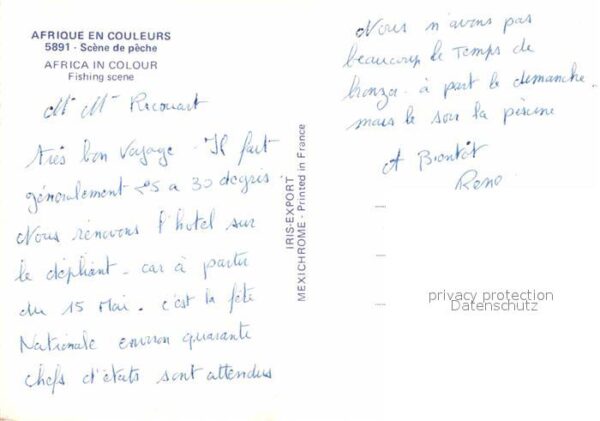 AFRIQUE EN COULEURS
5891 - Scène de pêche
AFRICA IN COLOUR
Fishing scene
Mr Mme Recouart
très bon voyage. Il fait
généralement 25 a 30 degrés.
Nous rénovons l'hotel sur
le dépliant. car à partir
du 15 Mai. c'est la fête
Nationale environ quarante
chefs d'états sont attendus
IRIS-EXPORT
MEXICHROME - Printed in France
Nous n'avons pas
beaucoup le Temps de
bronzer. à part le dimanche.
mais le soir la piscine
A Bientôt
Rene
privacy protection
Datenschutz